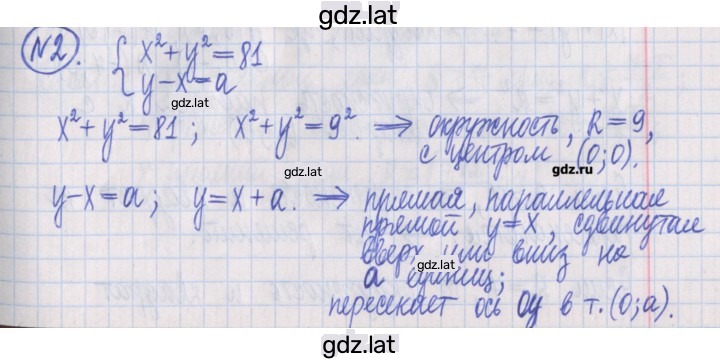 gdz.lat
№2. { x²+y²=81
y-x=a
gdz.lat
x²+y²=81; x²+y²=9². ⇒ окружность, R=9,
с центром (0;0).
gdz.ru
y-x=a; y=x+a. ⇒ прямая, параллельная
прямой y=x, сдвинутая
вверх или вниз на
gdz.lat
a единиц;
пересекает ось Oy в т. (0;a).
gdz.lat